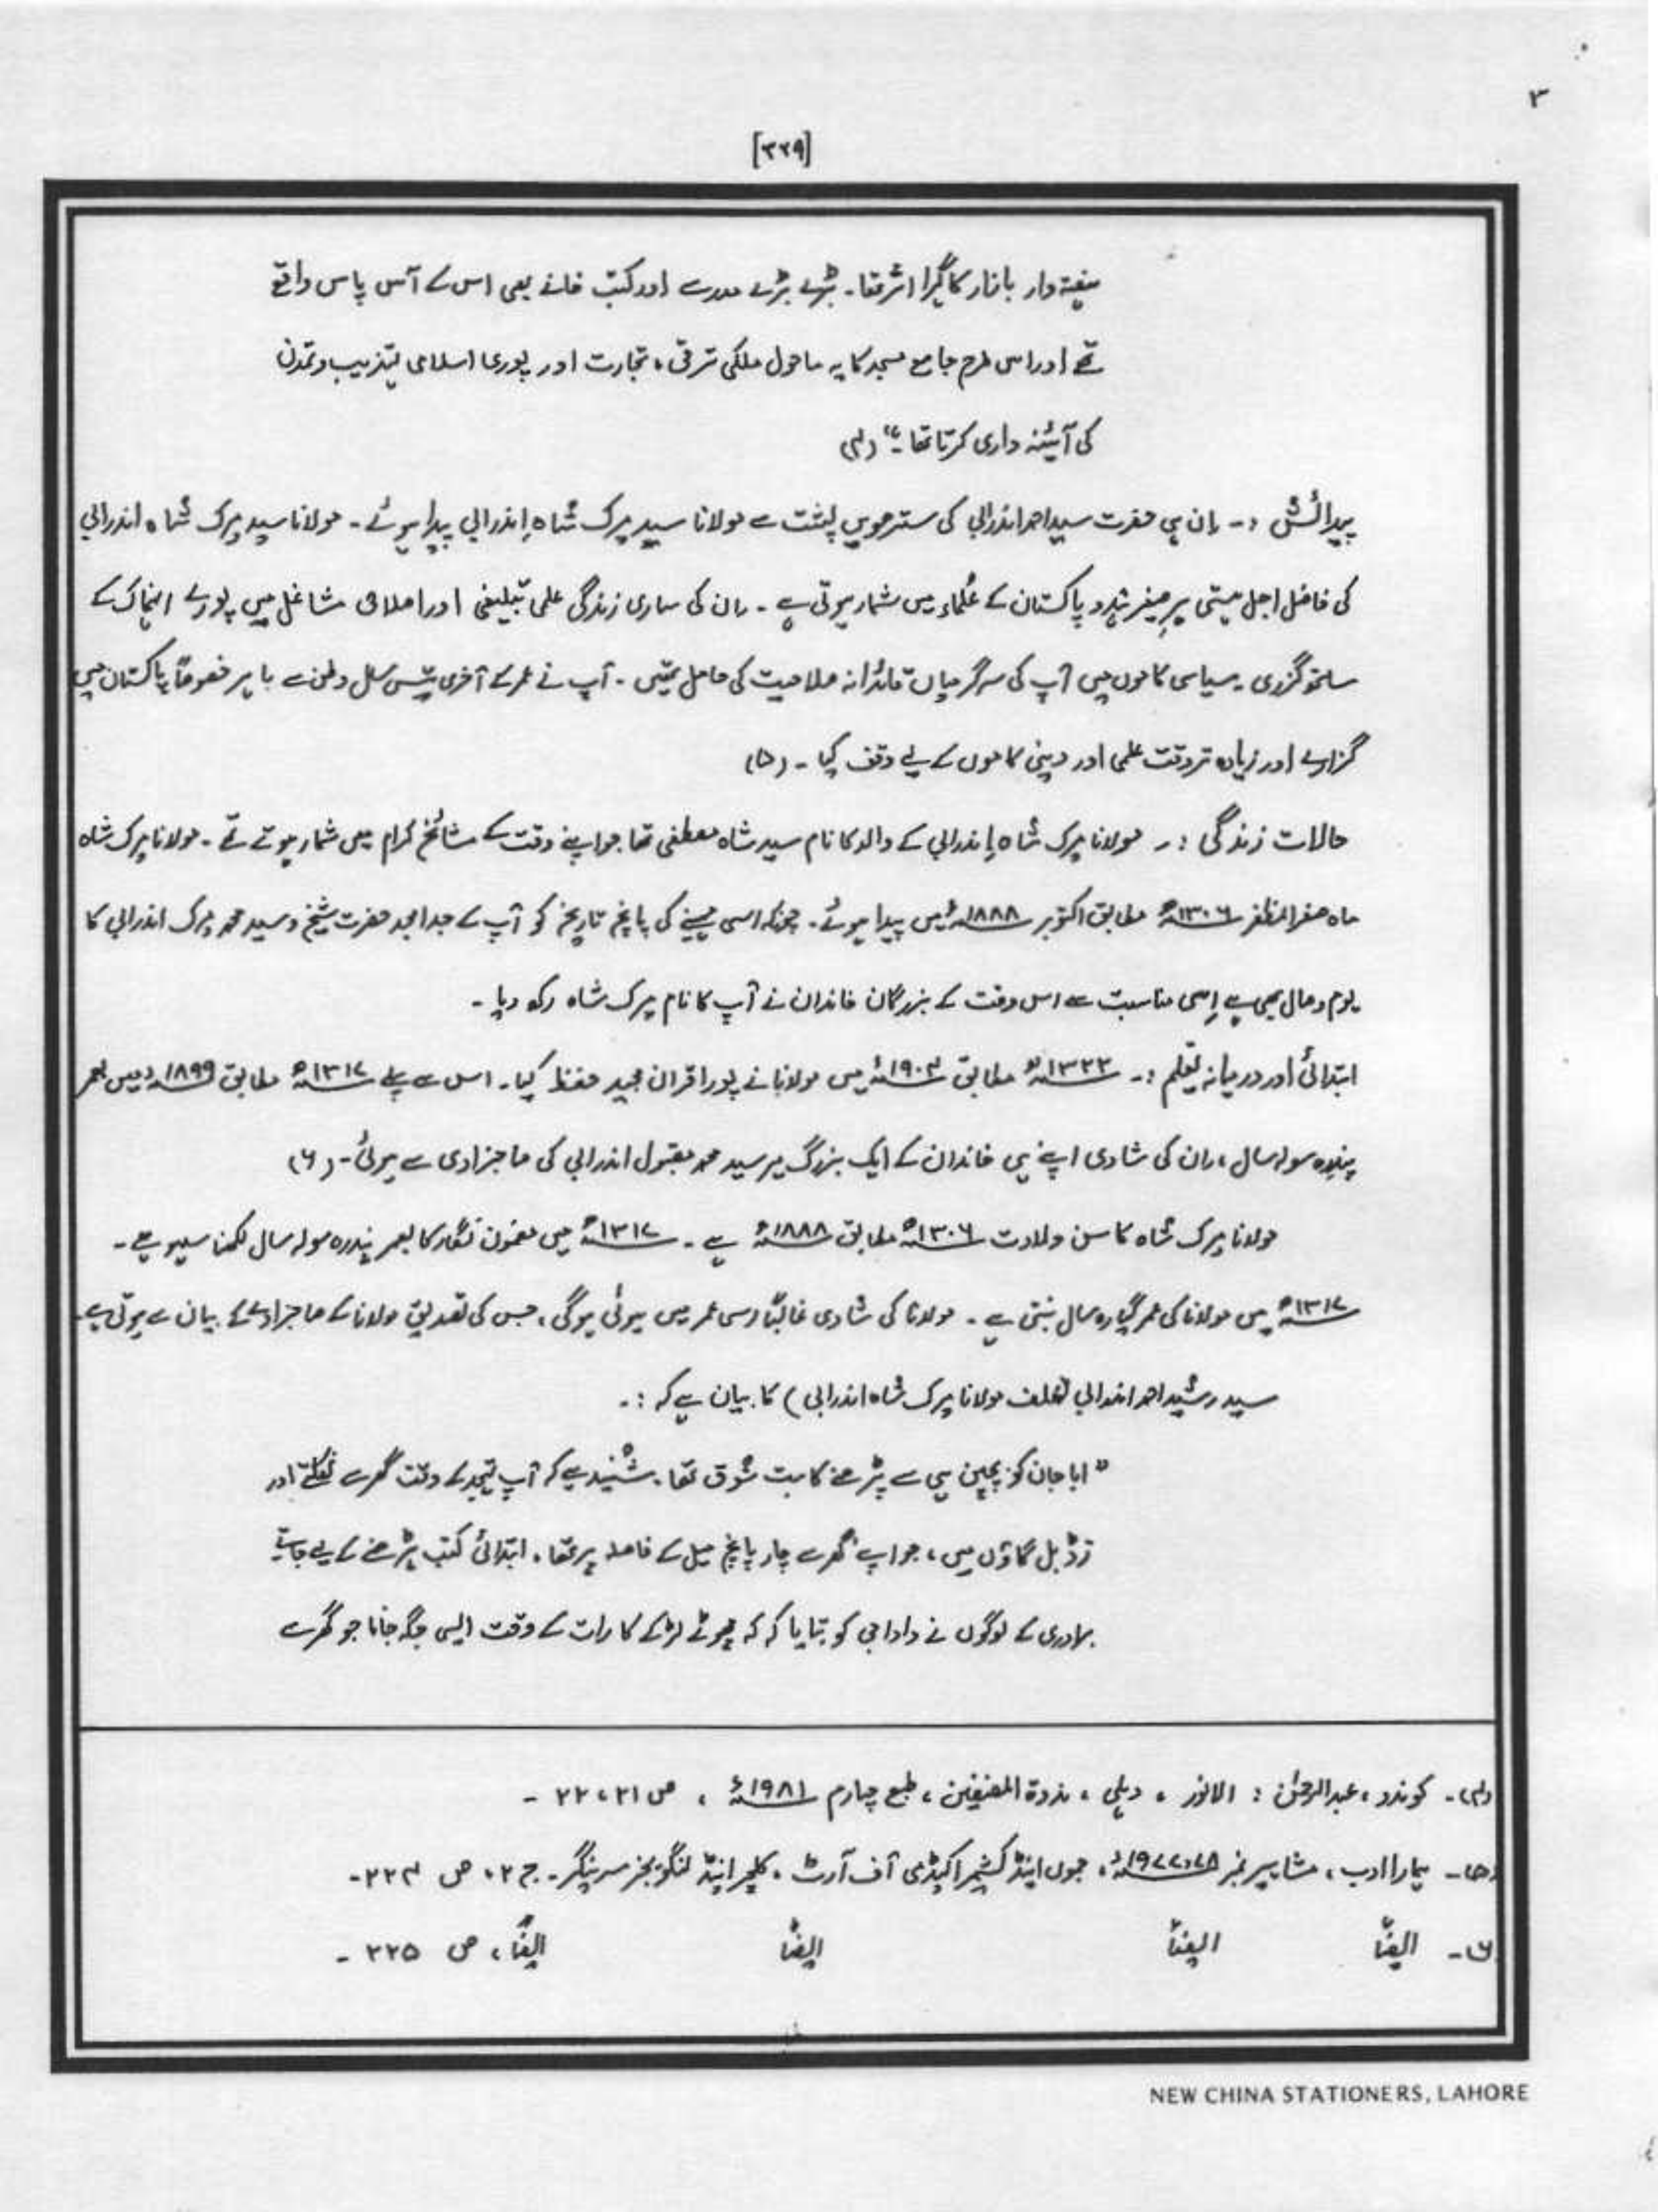 ۳
[۳۲۹]
ہفتہ وار بازار کا گہرا اثر تھا۔ بڑے بڑے مدرسے اور کتب خانے بھی اس کے آس پاس واقع
تھے اور اس طرح جامع مسجد کا یہ ماحول ملکی ترقی، تجارت اور پوری اسلامی تہذیب و تمدن
کی آئینہ داری کرتا تھا۔“ (۴)
پیدائش :۔ ان ہی حضرت سید احمد اندرابی کی سترھویں پشت سے مولانا سید میرک شاہ اندرابی پیدا ہوئے۔ مولانا سید میرک شاہ اندرابی
کی فاضل اجل ہستی برصغیر ہند و پاکستان کے علماء میں شمار ہوتی ہے۔ ان کی ساری زندگی علمی تبلیغی اور اصلاحی مشاغل میں پورے انہماک کے
ساتھ گزری۔ سیاسی کاموں میں آپ کی سرگرمیاں قائدانہ صلاحیت کی حامل تھیں۔ آپ نے عمر کے آخری تیس سال وطن سے باہر خصوصاً پاکستان میں
گزارے اور زیادہ تر وقت علمی اور دینی کاموں کے لیے وقف کیا۔ (۵)
حالات زندگی :۔ مولانا میرک شاہ اندرابی کے والد کا نام سید شاہ مصطفی تھا جو اپنے وقت کے مشائخ کرام میں شمار ہوتے تھے۔ مولانا میرک شاہ
ماہ صفر المظفر ۱۳۰۶ھ مطابق اکتوبر ۱۸۸۸ء میں پیدا ہوئے۔ چونکہ اسی مہینے کی پانچ تاریخ کو آپ کے جد امجد حضرت شیخ و سید محمد میرک اندرابی کا
یوم وصال بھی ہے اِسی مناسبت سے اس وقت کے بزرگان خاندان نے آپ کا نام میرک شاہ رکھ دیا۔
ابتدائی اور درمیانہ تعلیم :۔ ۱۳۲۲ھ مطابق ۱۹۰۴ء میں مولانا نے پورا قرآن مجید حفظ کیا۔ اس سے پہلے ۱۳۱۷ھ مطابق ۱۸۹۹ء میں بعمر
پندرہ سولہ سال، ان کی شادی اپنے ہی خاندان کے ایک بزرگ میر سید محمد مقبول اندرابی کی صاحبزادی سے ہوئی۔ (۶)
مولانا میرک شاہ کا سن ولادت ۱۳۰۶ھ مطابق ۱۸۸۸ء ہے۔ ۱۳۱۷ھ میں مضمون نگار کا بعمر پندرہ سولہ سال لکھنا سہو ہے۔
۱۳۱۷ھ میں مولانا کی عمر گیارہ سال بنتی ہے۔ مولانا کی شادی غالباً اسی عمر میں ہوئی ہوگی، جس کی تصدیق مولانا کے صاحبزادے کے بیان سے ہوتی ہے۔
سید رشید احمد اندرابی (خلف مولانا میرک شاہ اندرابی) کا بیان ہے کہ :۔
” ابا جان کو بچپن ہی سے پڑھنے کا بہت شوق تھا۔ شنید ہے کہ آپ تہجد کے وقت گھر سے نکلتے اور
زڈی بل گاؤں میں، جو اپنے گھر سے چار پانچ میل کے فاصلہ پر تھا، ابتدائی کتب پڑھنے کے لیے جاتے
برادری کے لوگوں نے دادا جی کو بتایا کہ کہ چھوٹے لڑکے کا رات کے وقت ایسی جگہ جانا جو گھر سے
(۴)۔ کوندو، عبدالرحمٰن : الانور ، دہلی ، ندوۃ المصنفین ، طبع چہارم ۱۹۸۱ء ، ص ۲۱، ۲۲ ۔
(۵)۔ ہمارا ادب، مشاہیر نمبر ۷۸۔۱۹۷۷ء، جموں اینڈ کشمیر اکیڈمی آف آرٹ، کلچر اینڈ لنگویجز سرینگر۔ ج ۲، ص ۲۲۴۔
۶۔ ایضاً ایضاً ایضاً ایضاً، ص ۲۲۵ ۔
NEW CHINA STATIONERS, LAHORE